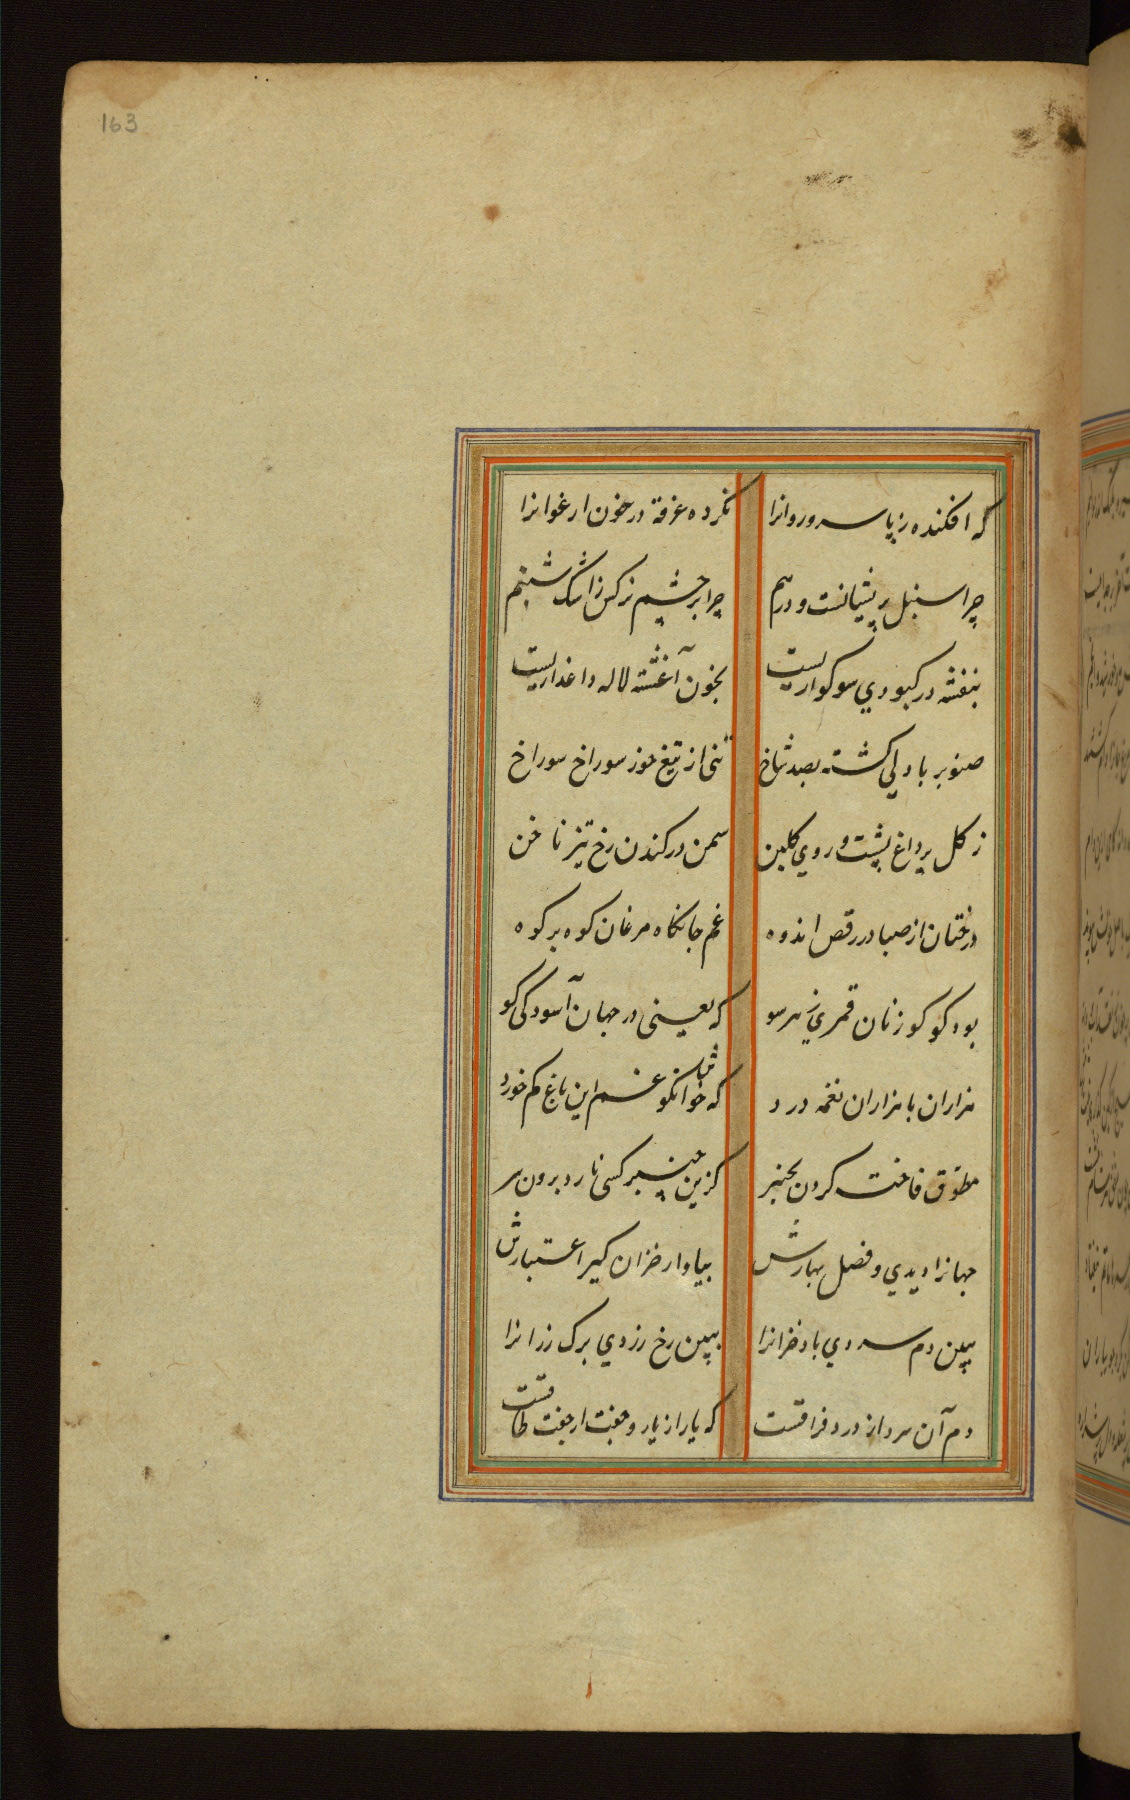 163
که افکنده ز پا سرو روانرا نکرده غرقه در خون ارغوانرا
چرا سنبل پریشانست و درهم چرا بر چشم نرکس ز اشک شبنم
بنفشه در کبودی سوکواریست بخون آغشته لاله داغداریست
صنوبر با دلی کشته بصد شاخ تنی از تیغ خوز سوراخ سوراخ
ز کل پرداغ پشت و روی کلبن سمن در کندن رخ تیز ناخن
درختان از صبا در رقص اندوه غم جانکاه مرغان کوه بر کوه
بود کو کو زنان قمری ز هر سو که یعنی در جهان آسودکی کو
هزاران با هزاران نغمه درد که شاخوانکو غم این باغ کم خورد
مطوق فاخته کردن بچنبر کزین چنبر کسی نارد برون سر
جهانرا دیدی و فصل بهارش بیا وز خزان کیر اعتبارش
ببین دم سردی باد خزانرا ببین رخ زردی برک رزانرا
دم آن سرد از درد فراقست که یار از یار و جفت از جفت طاقست